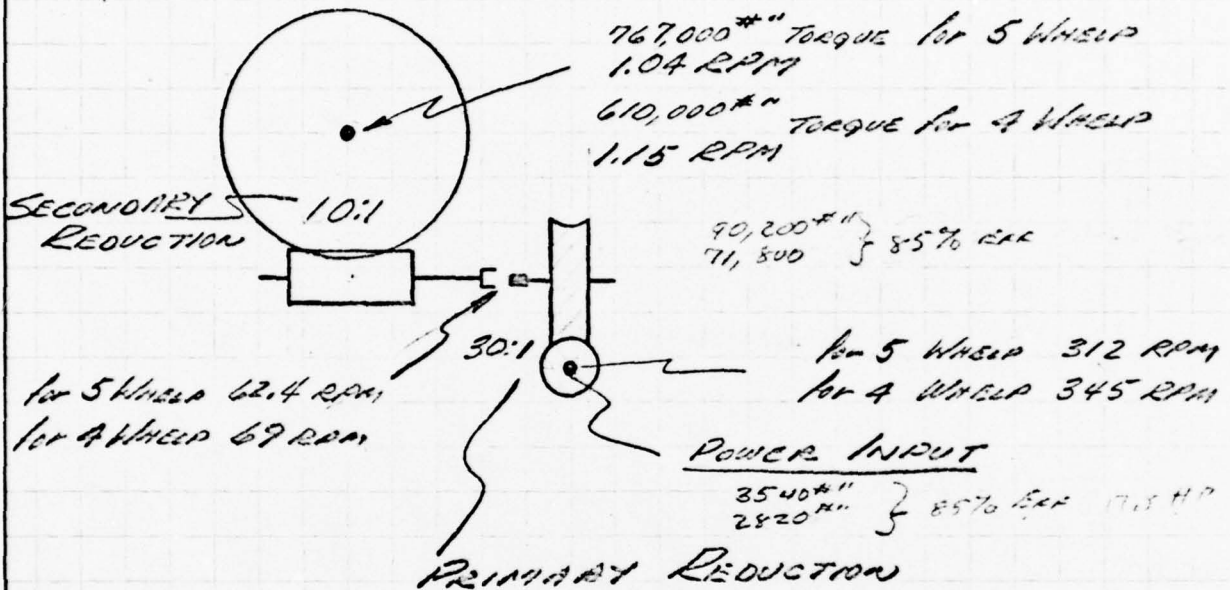 767,000 #" TORQUE for 5 WHEEL
1.04 RPM
610,000 #" TORQUE for 4 WHEEL
1.15 RPM
SECONDARY REDUCTION
10:1
90,200 #"
71,800 } 85% EFF
30:1
for 5 WHEEL 62.4 RPM
for 4 WHEEL 69 RPM
for 5 WHEEL 312 RPM
for 4 WHEEL 345 RPM
POWER INPUT
3540 #"
2820 #" } 85% EFF 17.5 HP
PRIMARY REDUCTION